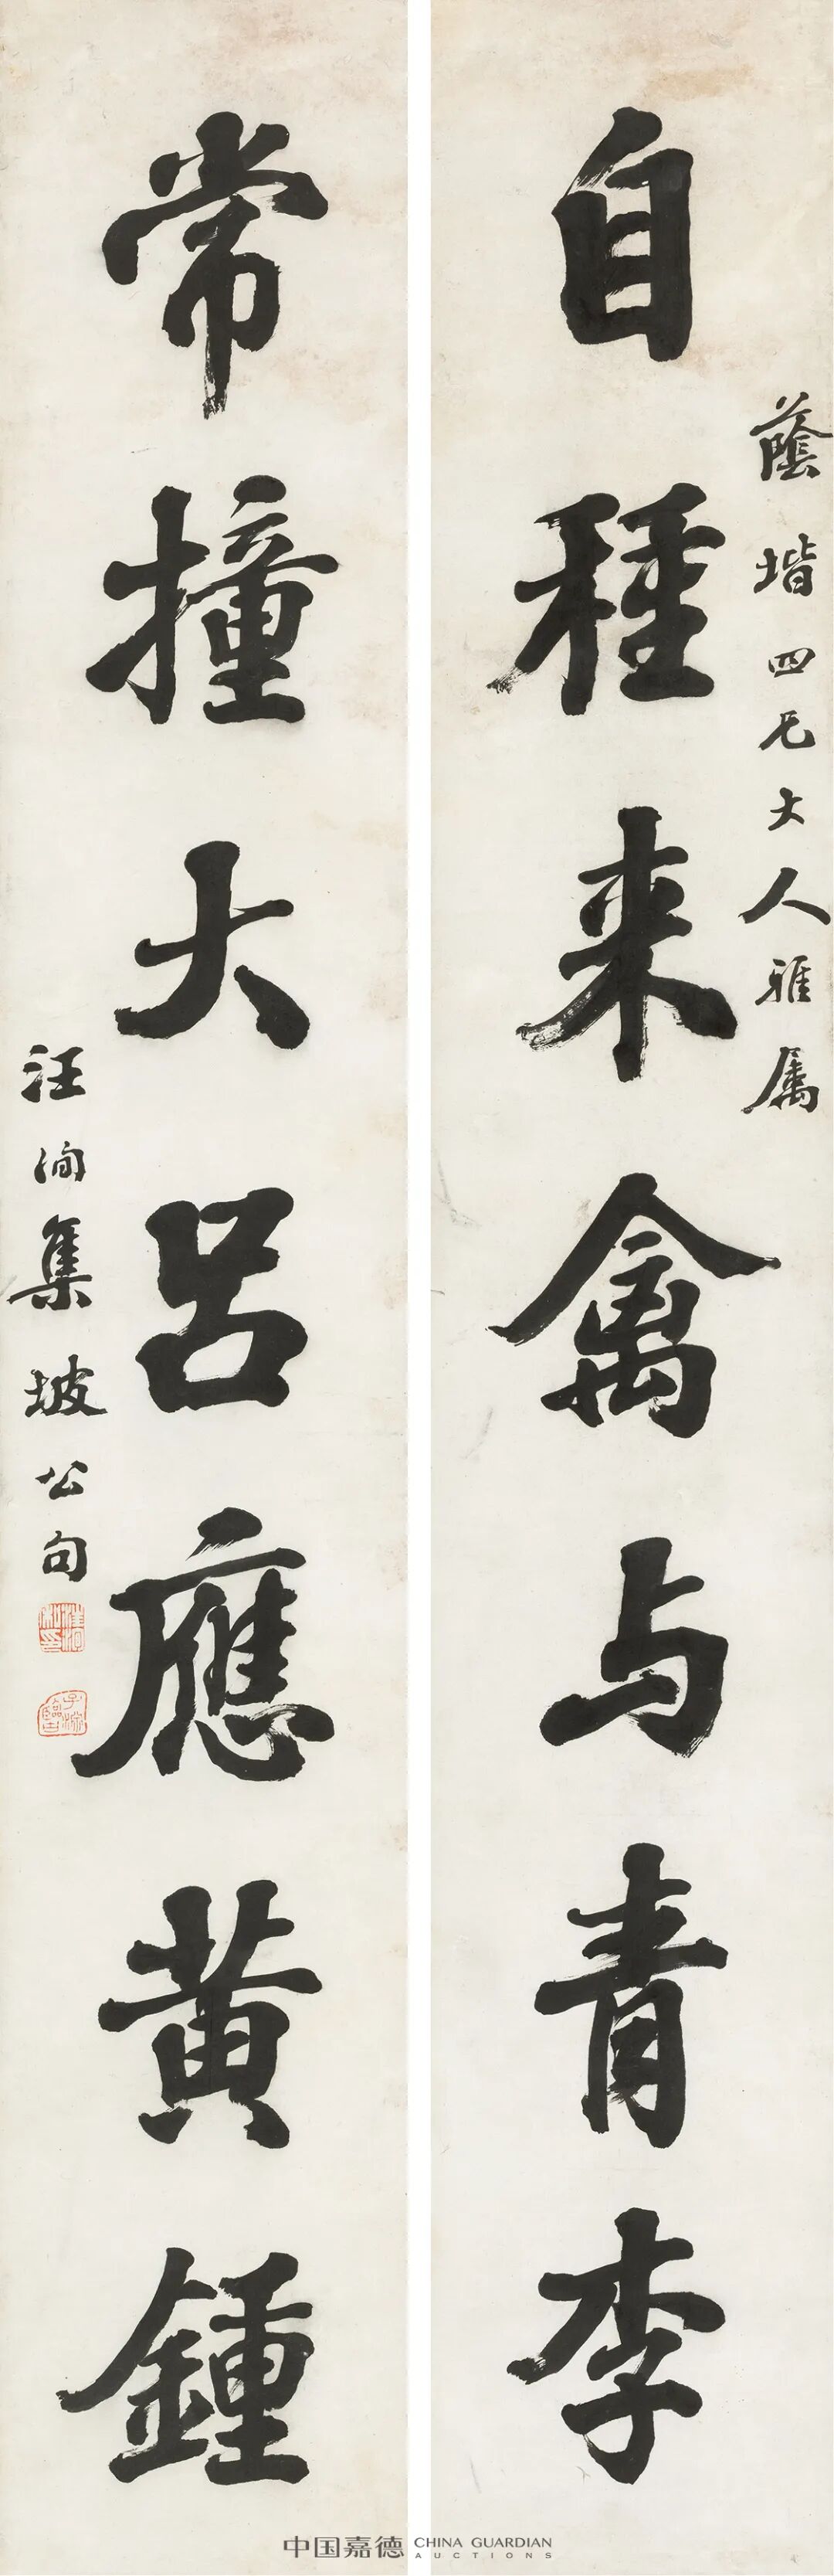 蔭堦四兄大人雅属
自種来禽与青李
常撞大吕應黄鍾
汪洵集坡公句
中国嘉德 CHINA GUARDIAN
AUCTIONS